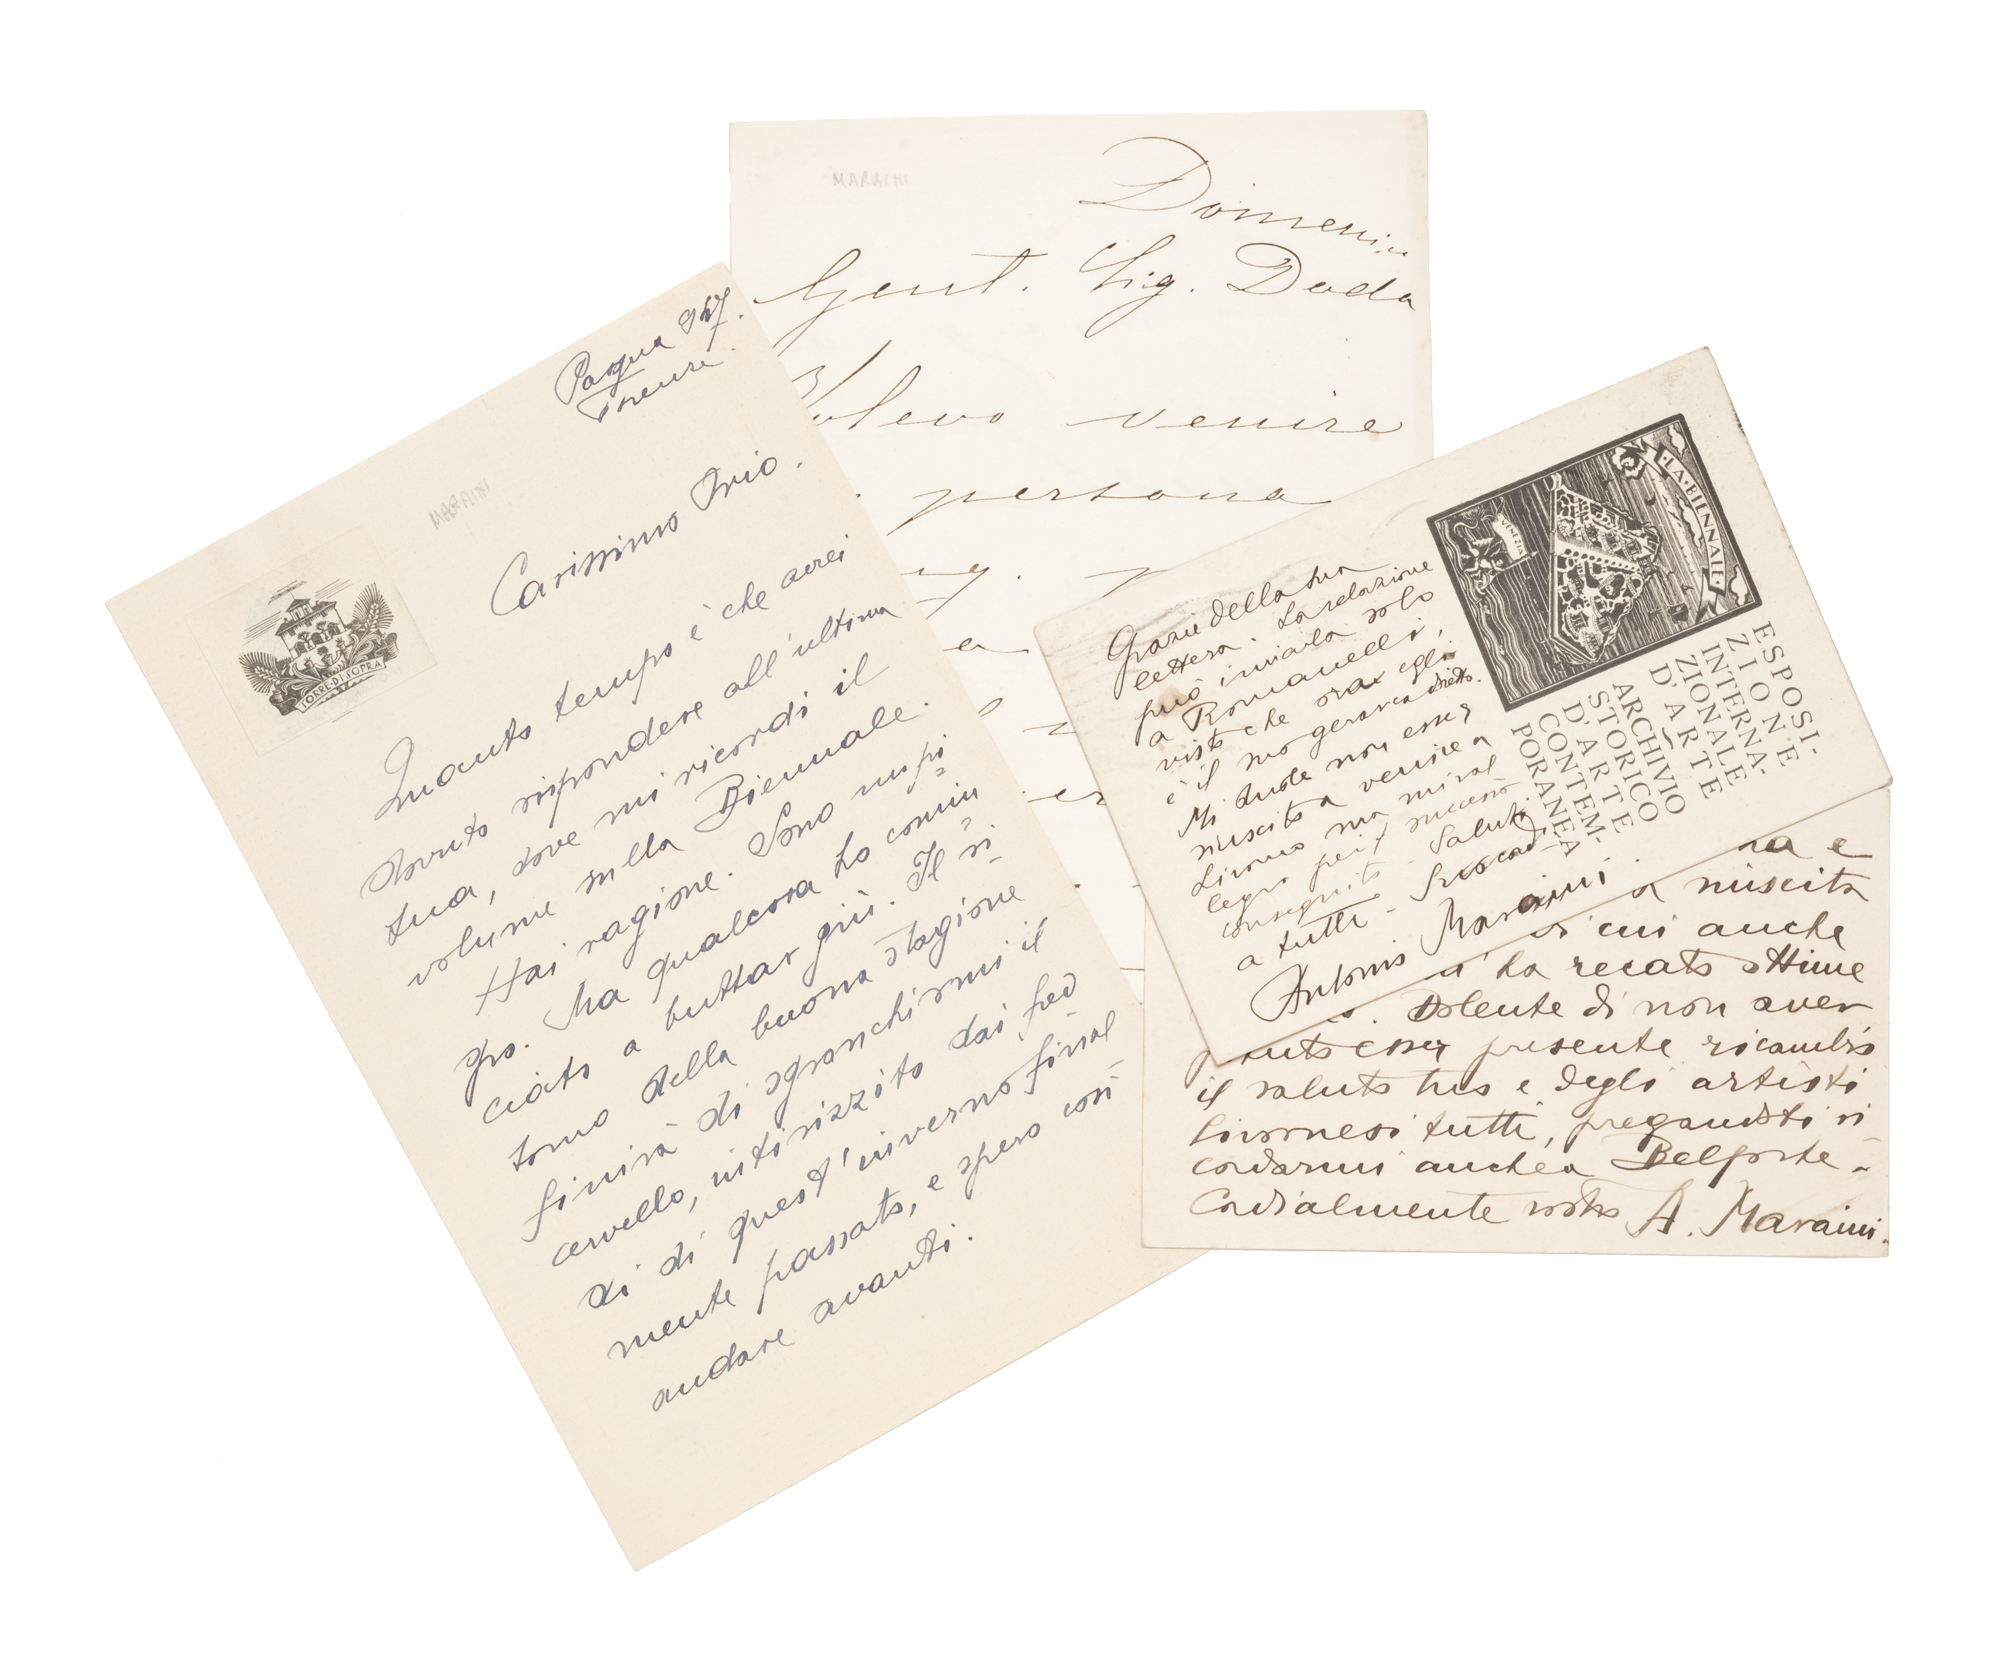 MARAINI
Pasqua 947.
Firenze.
TORRE·DI·SOPRA
Carissimo Irio.
Quanto tempo è che avrei
dovuto rispondere all'ultima
tua, dove mi ricordi il
volume sulla Biennale.
Hai ragione. Sono un pi
gro. Ma qualcosa ho comin
ciato a buttar giù. Il ri=
torno della buona stagione
finirà di sgranchirmi il
cervello, intirizzito dai fred
di di quest'inverno final
mente passato, e spero così
andare avanti.
MARAINI
Gent. Sig. Dada
Volevo venire
persona
Grazie della tua
lettera. La relazione
può inviarla solo
a Romanelli,
visto che ora egli
è il suo gerarca diretto.
Mi duole non esser
riuscito a venire a
Livorno ma mi ral
legro per il successo
conseguito. Saluti
a tutti -
Antonio Maraini
LA·BIENNALE·
VENEZIA
ESPOSI-
ZIONE
INTERNA-
ZIONALE
D'ARTE
ARCHIVIO
STORICO
D'ARTE
CONTEM-
PORANEA
na e
a riuscita
di cui anche
ha recato ottime
Dolente di non aver
potuto esser presente ricambio
il saluto tuo e degli artisti
livornesi tutti, pregandoti ri
cordarmi anche a Belforte -
Cordialmente vostro A. Maraini.